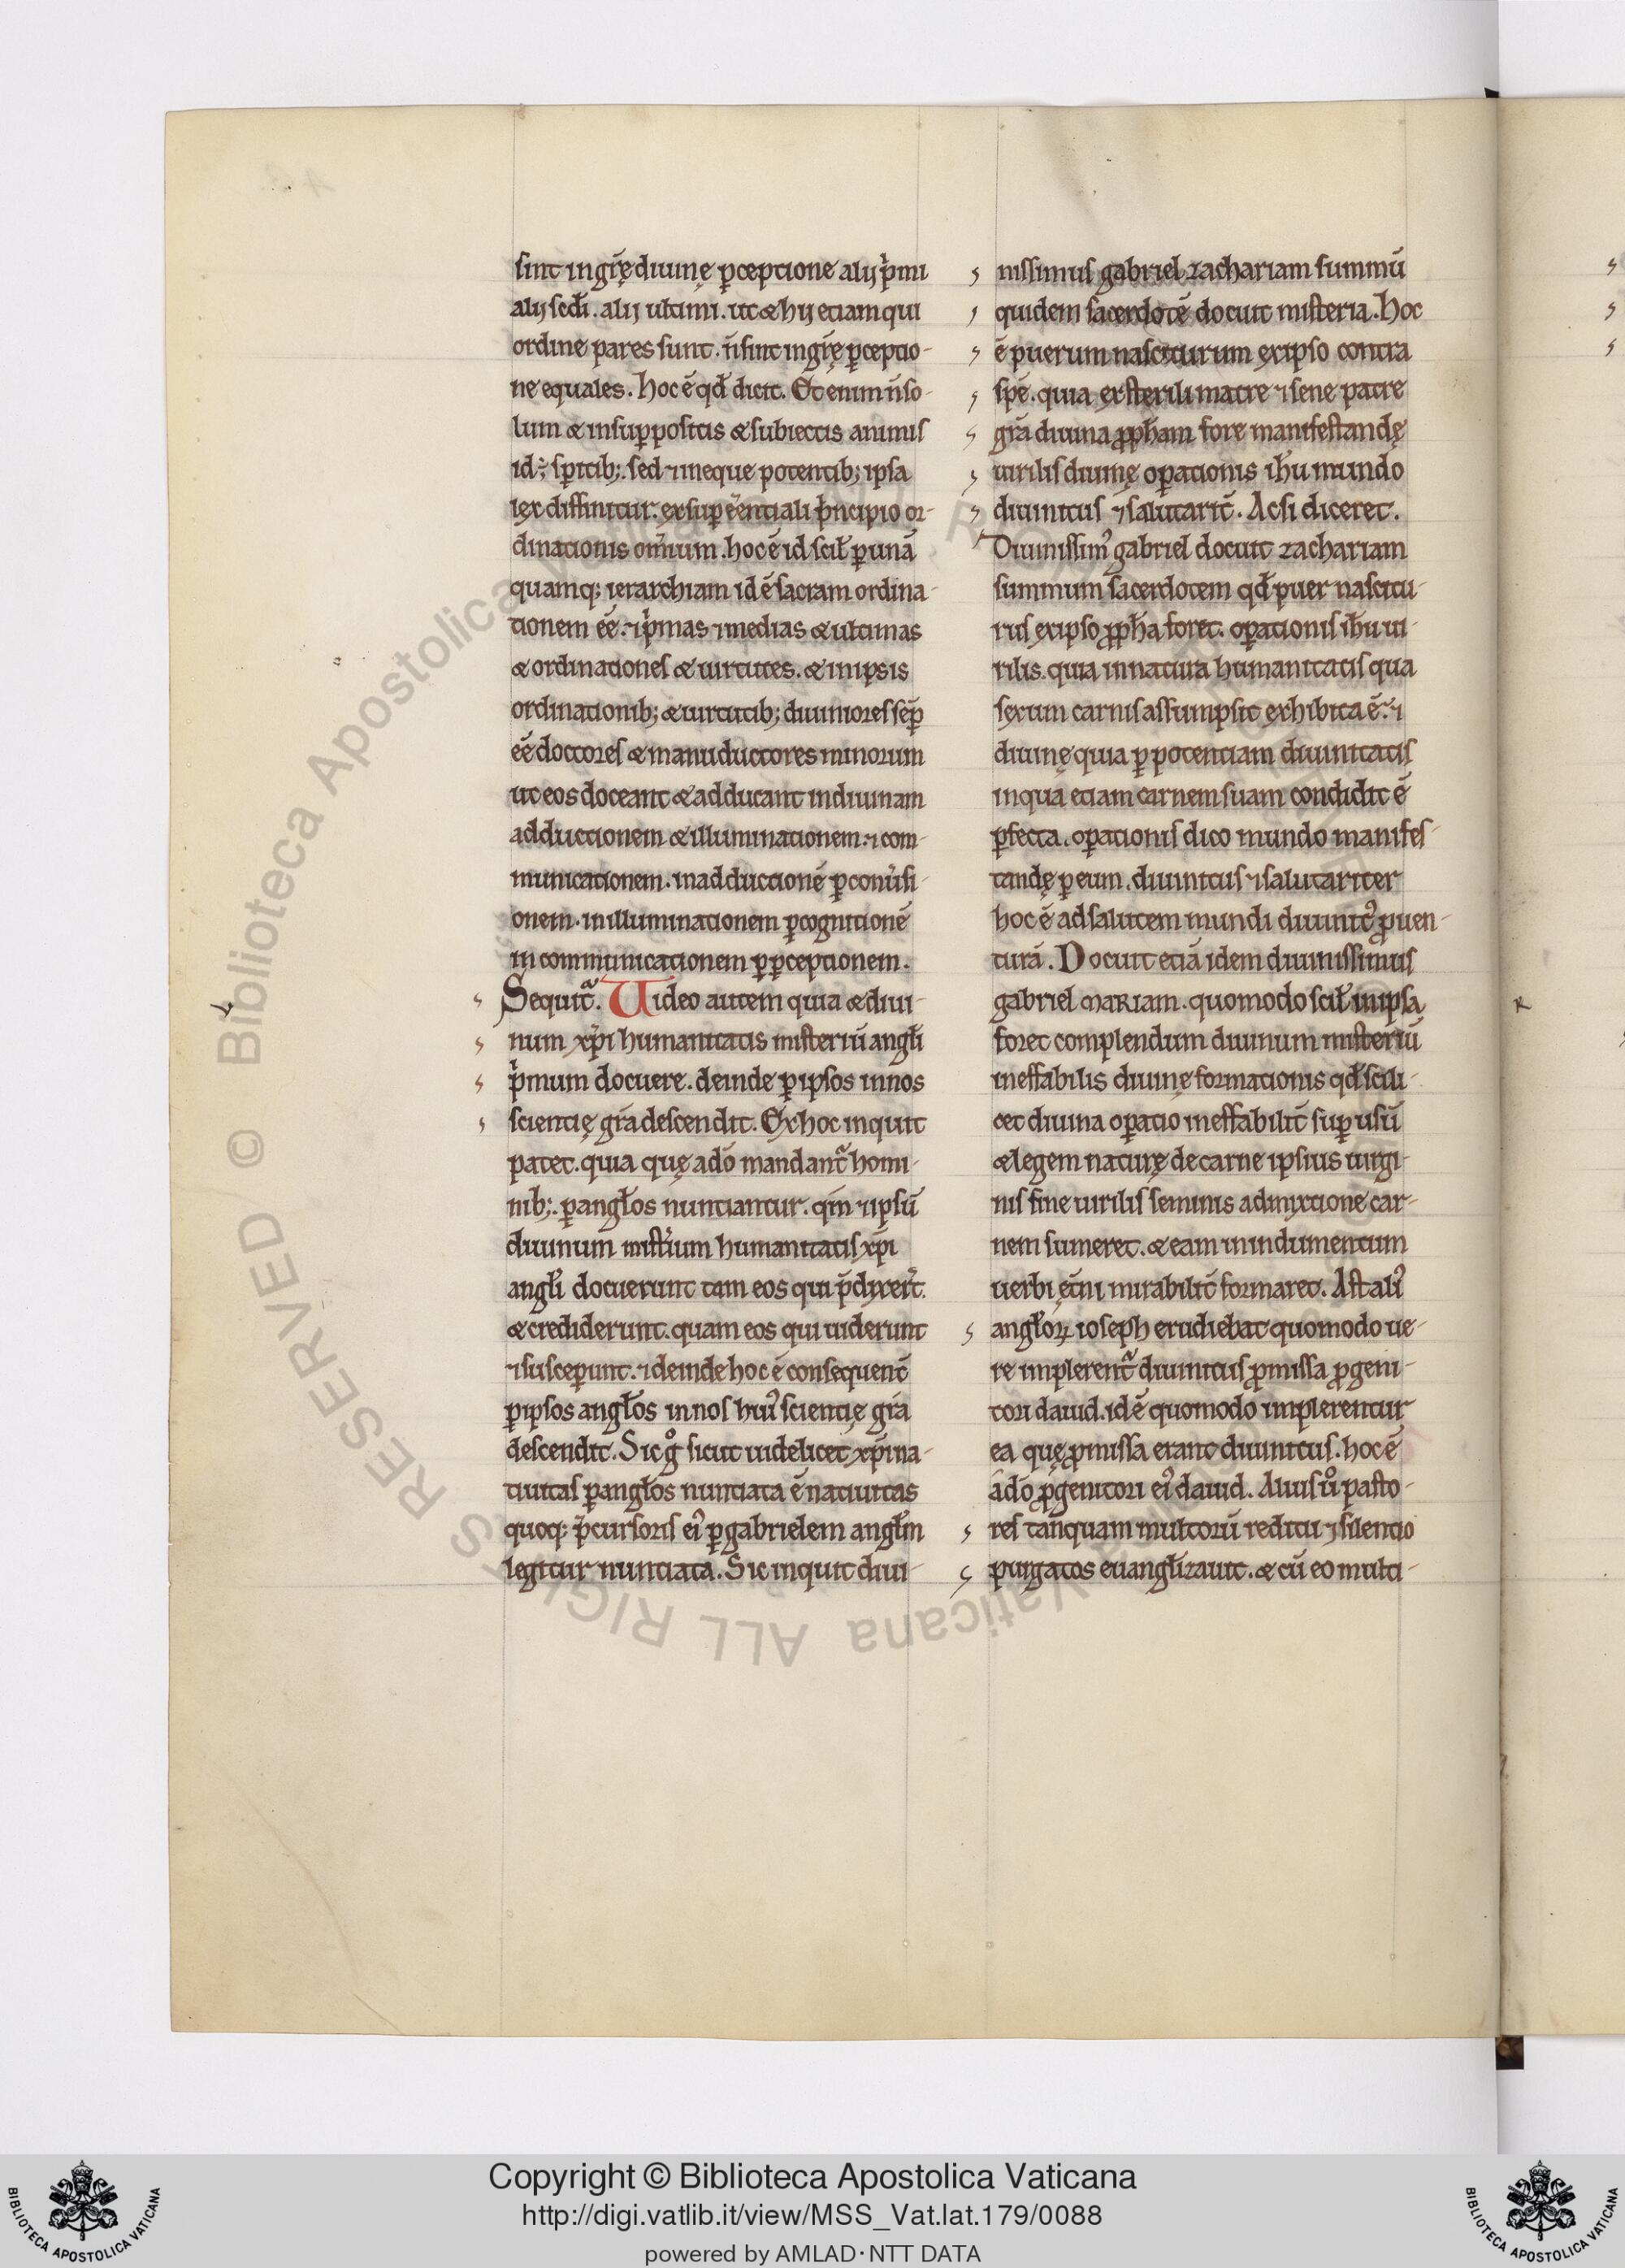 sint in grę̄ diuinę ꝑceptione alij p̄mi
alij sc̄di. alij ultimi. ut & hij etiam qui
ordine pares sunt. n̄ sint in grę̄ ꝑceptio-
ne equales. Hoc ē qd̄ dicit. Et enim n̄ so-
lum & in suꝑpositis & subiectis animis
id ÷ sp̄itib;. sed ⁊ in eque potentib; ipsa
lex diffinitur. ex suꝑeēntiali p̄ncipio or-
dinationis om̄ium. hoc ē id scil̄ ꝑ unā
quamq; ierarchiam id ē sacram ordina-
tionem eē. ⁊ p̄mas ⁊ medias & ultimas
& ordinationes & uirtutes. & in ipsis
ordinationib; & uirtutib; diuiniores sēp
eē doctores & manuductores minorum
ut eos doceant & adducant in diuinam
adductionem & illuminationem. ⁊ com-
municationem. in adductionē ꝑ conu̓si-
onem. in illuminationem ꝑ cognitionē
in communicationem ꝑ ꝑceptionem.
Sequit̄. Uideo autem quia & diui-
num xp̄i humanitatis misteriū angl̄i
p̄mum docuere. deinde ꝑ ipsos in nos
scientię grā descendit. Ex hoc inquit
patet. quia quę a dō mandant̄ homi-
nib;. ꝑ angl̄os nuntiantur. qm̄ ⁊ ipsū
diuinum mist̓ium humanitatis xp̄i
angl̄i docuerunt tam eos qui p̄dixer̄t.
& crediderunt. quam eos qui uiderunt
⁊ susceꝑunt. ⁊ deinde hoc ē consequent̄
ꝑ ipsos angl̄os in nos huiꝰ scientię grā
descendit. Sic gͦ sicut uidelicet xp̄i na-
tiuitas ꝑ angl̄os nuntiata ē natiuitas
quoq; p̄cursoris eiꝰ ꝑ gabrielem angl̄m
legitur nuntiata. Sic inquit diui-
nissimus gabriel zachariam summū
quidem sacerdotē docuit misteria. Hoc
ē puerum nasciturum ex ipso contra
spē. quia ex sterili matre ⁊ sene patre
grā diuina ꝓpham fore manifestandę
uirilis diuinę oꝑationis ih̄u mundo
diuinitus ⁊ salutarit̄. Acsi diceret.
Diuinissimꝰ gabriel docuit zachariam
summum sacerdotem qd̄ puer nascitu-
rus ex ipso ꝓpha foret. oꝑationis ih̄u ui-
rilis. quia in natura humanitatis qua
sexum carnis assumpsit exhibita ē. ⁊
diuinę quia ꝑ potentiam diuinitatis
in qua etiam carnem suam condidit ē
ꝑfecta. oꝑationis dico mundo manifes-
tandę ꝑ eum. diuinitus ⁊ salutariter
hoc ē ad salutem mundi diuinitꝰ ꝓuen-
turā. Docuit etiā idem diuinissimus
gabriel MARIAM. quomodo scil̄ in ipsa
foret complendum diuinum misteriū
ineffabilis diuinę formationis qd̄ scili-
cet diuina oꝑatio ineffabilit̄ suꝑ usū
& legem naturę de carne ipsius uirgi-
nis sine uirilis seminis admixtione car-
nem sumeret. & eam in indumentum
uerbi ęt̄ni mirabilit̄ formaret. Ast aliꝰ
angl̄oꝝ ioseph erudiebat quomodo ue-
re implerent̄ diuinitus ꝓmissa ꝓgeni-
tori dauid. id ē quomodo implerentur
ea quę ꝓmissa erant diuinitus. hoc ē
a dō ꝓgenitori eiꝰ dauid. Aliusuͦ pasto-
res tanquam multorū reditu ⁊ silentio
purgatos euangl̄izauit. & cū eo multi-
Copyright © Biblioteca Apostolica Vaticana
http://digi.vatlib.it/view/MSS_Vat.lat.179/0088
powered by AMLAD·NTT DATA
BIBLIOTECA APOSTOLICA VATICANA
BIBLIOTECA APOSTOLICA VATICANA
© Biblioteca Apostolica Vaticana ALL RIGHTS RESERVED